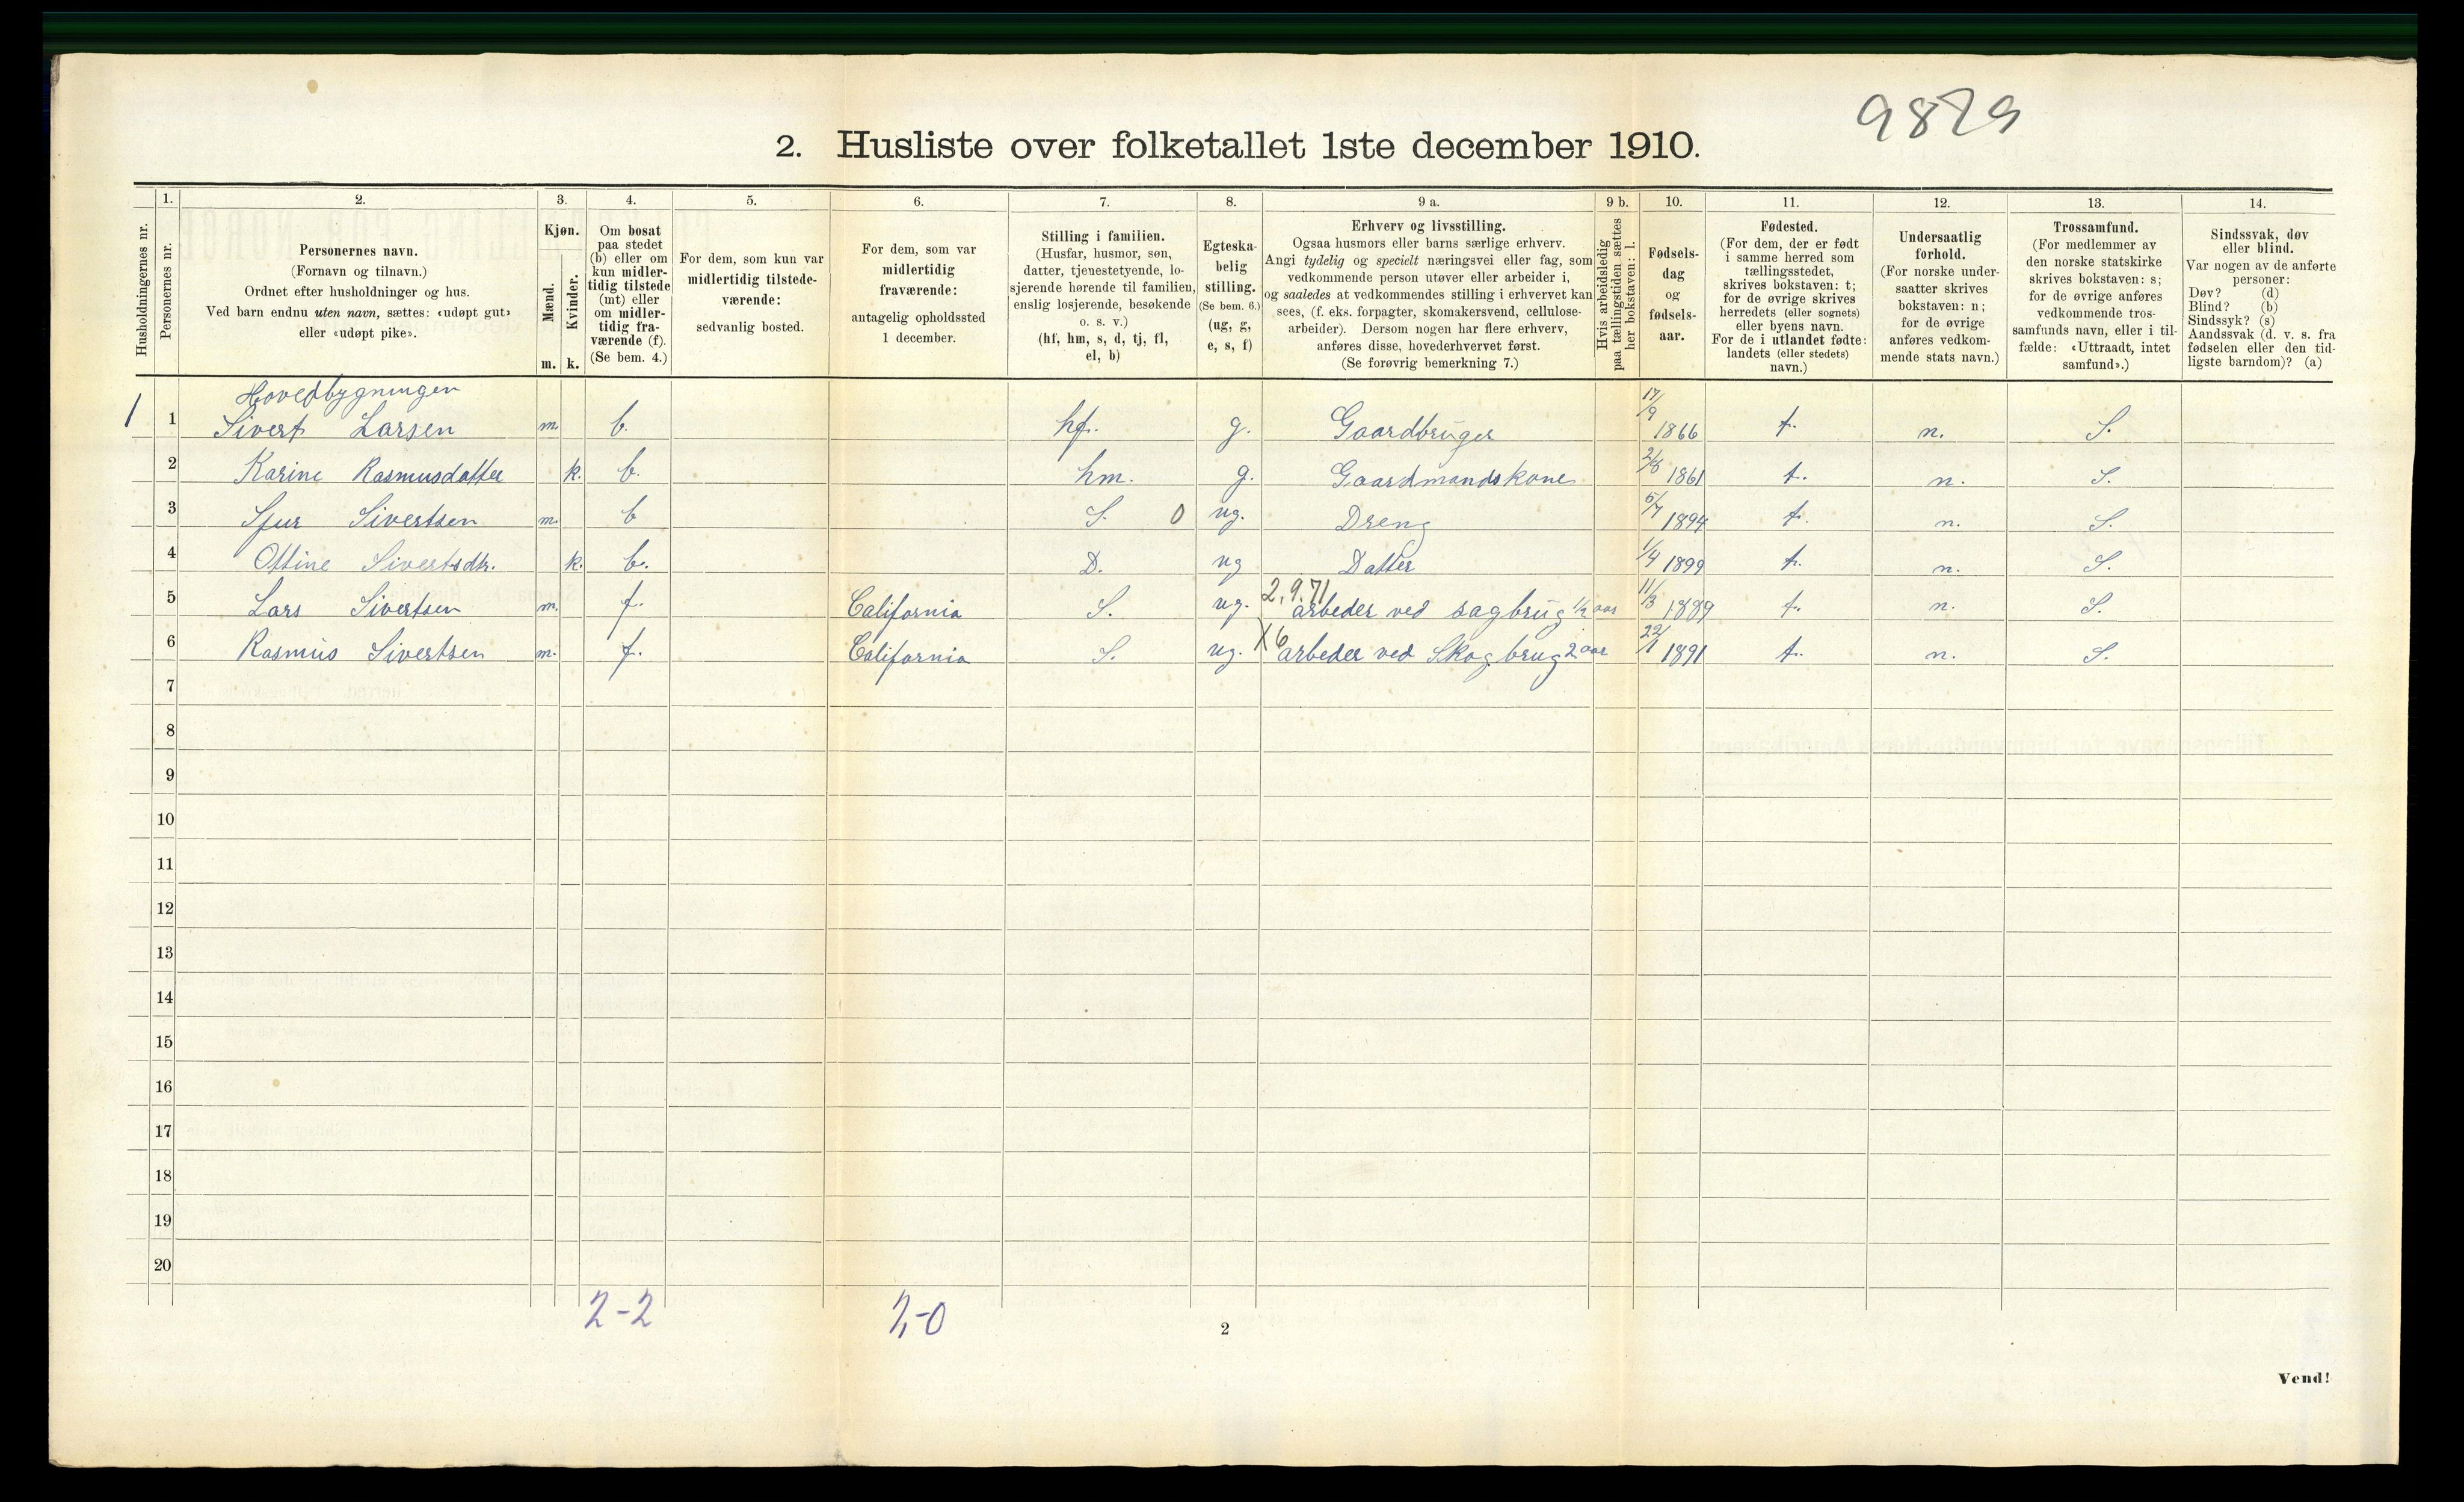 9879
2. Husliste over folketallet 1ste december 1910.
Husholdningernes nr.
1.
Personernes nr.
2.
Personernes navn.
(Fornavn og tilnavn.)
Ordnet efter husholdninger og hus.
Ved barn endnu uten navn, sættes: «udøpt gut»
eller «udøpt pike».
3.
Kjøn.
Mænd.
Kvinder.
m. k.
4.
Om bosat
paa stedet
(b) eller om
kun midler-
tidig tilstede
(mt) eller
om midler-
tidig fra-
værende (f).
(Se bem. 4.)
5.
For dem, som kun var
midlertidig tilstede-
værende:
sedvanlig bosted.
6.
For dem, som var
midlertidig
fraværende:
antagelig opholdssted
1 december.
7.
Stilling i familien.
(Husfar, husmor, søn,
datter, tjenestetyende, lo-
sjerende hørende til familien,
enslig losjerende, besøkende
o. s. v.)
(hf, hm, s, d, tj, fl,
el, b)
8.
Egteska-
belig
stilling.
(Se bem. 6.)
(ug, g,
e, s, f)
9 a.
Erhverv og livsstilling.
Ogsaa husmors eller barns særlige erhverv.
Angi tydelig og specielt næringsvei eller fag, som
vedkommende person utøver eller arbeider i,
og saaledes at vedkommendes stilling i erhvervet kan
sees, (f. eks. forpagter, skomakersvend, cellulose-
arbeider). Dersom nogen har flere erhverv,
anføres disse, hovederhvervet først.
(Se forøvrig bemerkning 7.)
9 b.
Hvis arbeidsledig
paa tællingstiden sættes
her bokstaven: l.
10.
Fødsels-
dag
og
fødsels-
aar.
11.
Fødested.
(For dem, der er født
i samme herred som
tællingsstedet,
skrives bokstaven: t;
for de øvrige skrives
herredets (eller sognets)
eller byens navn.
For de i utlandet fødte:
landets (eller stedets)
navn.)
12.
Undersaatlig
forhold.
(For norske under-
saatter skrives
bokstaven: n;
for de øvrige
anføres vedkom-
mende stats navn.)
13.
Trossamfund.
(For medlemmer av
den norske statskirke
skrives bokstaven: s;
for de øvrige anføres
vedkommende tros-
samfunds navn, eller i til-
fælde: «Uttraadt, intet
samfund».)
14.
Sindssvak, døv
eller blind.
Var nogen av de anførte
personer:
Døv? (d)
Blind? (b)
Sindssyk? (s)
Aandssvak (d. v. s. fra
fødselen eller den tid-
ligste barndom)? (a)
Hovedbygningen
1 1 Sivert Larsen m. b. hf. g. Gaardbruger 17/9 1866 t. n. S.
2 Karine Rasmusdatter k. b. hm. g. Gaardmandskone 2/8 1861 t. n. S.
3 Sjur Sivertsen m. b S. 0 ug. Dreng 5/7 1894 t. n. S.
4 Ottine Sivertsdtr. k. b. D. ug Datter 1/4 1899 t. n. S.
2.9.71
5 Lars Sivertsen m. f. California S. ug. arbeder ved sagbrug 1/2 aar 11/3 1889 t. n. S.
6 Rasmus Sivertsen m. f. California S. ug. X6 arbeder ved Skogbrug 2 aar 22/1 1891 t. n. S.
7
8
9
10
11
12
13
14
15
16
17
18
19
20
2-2 2-0
2
Vend!